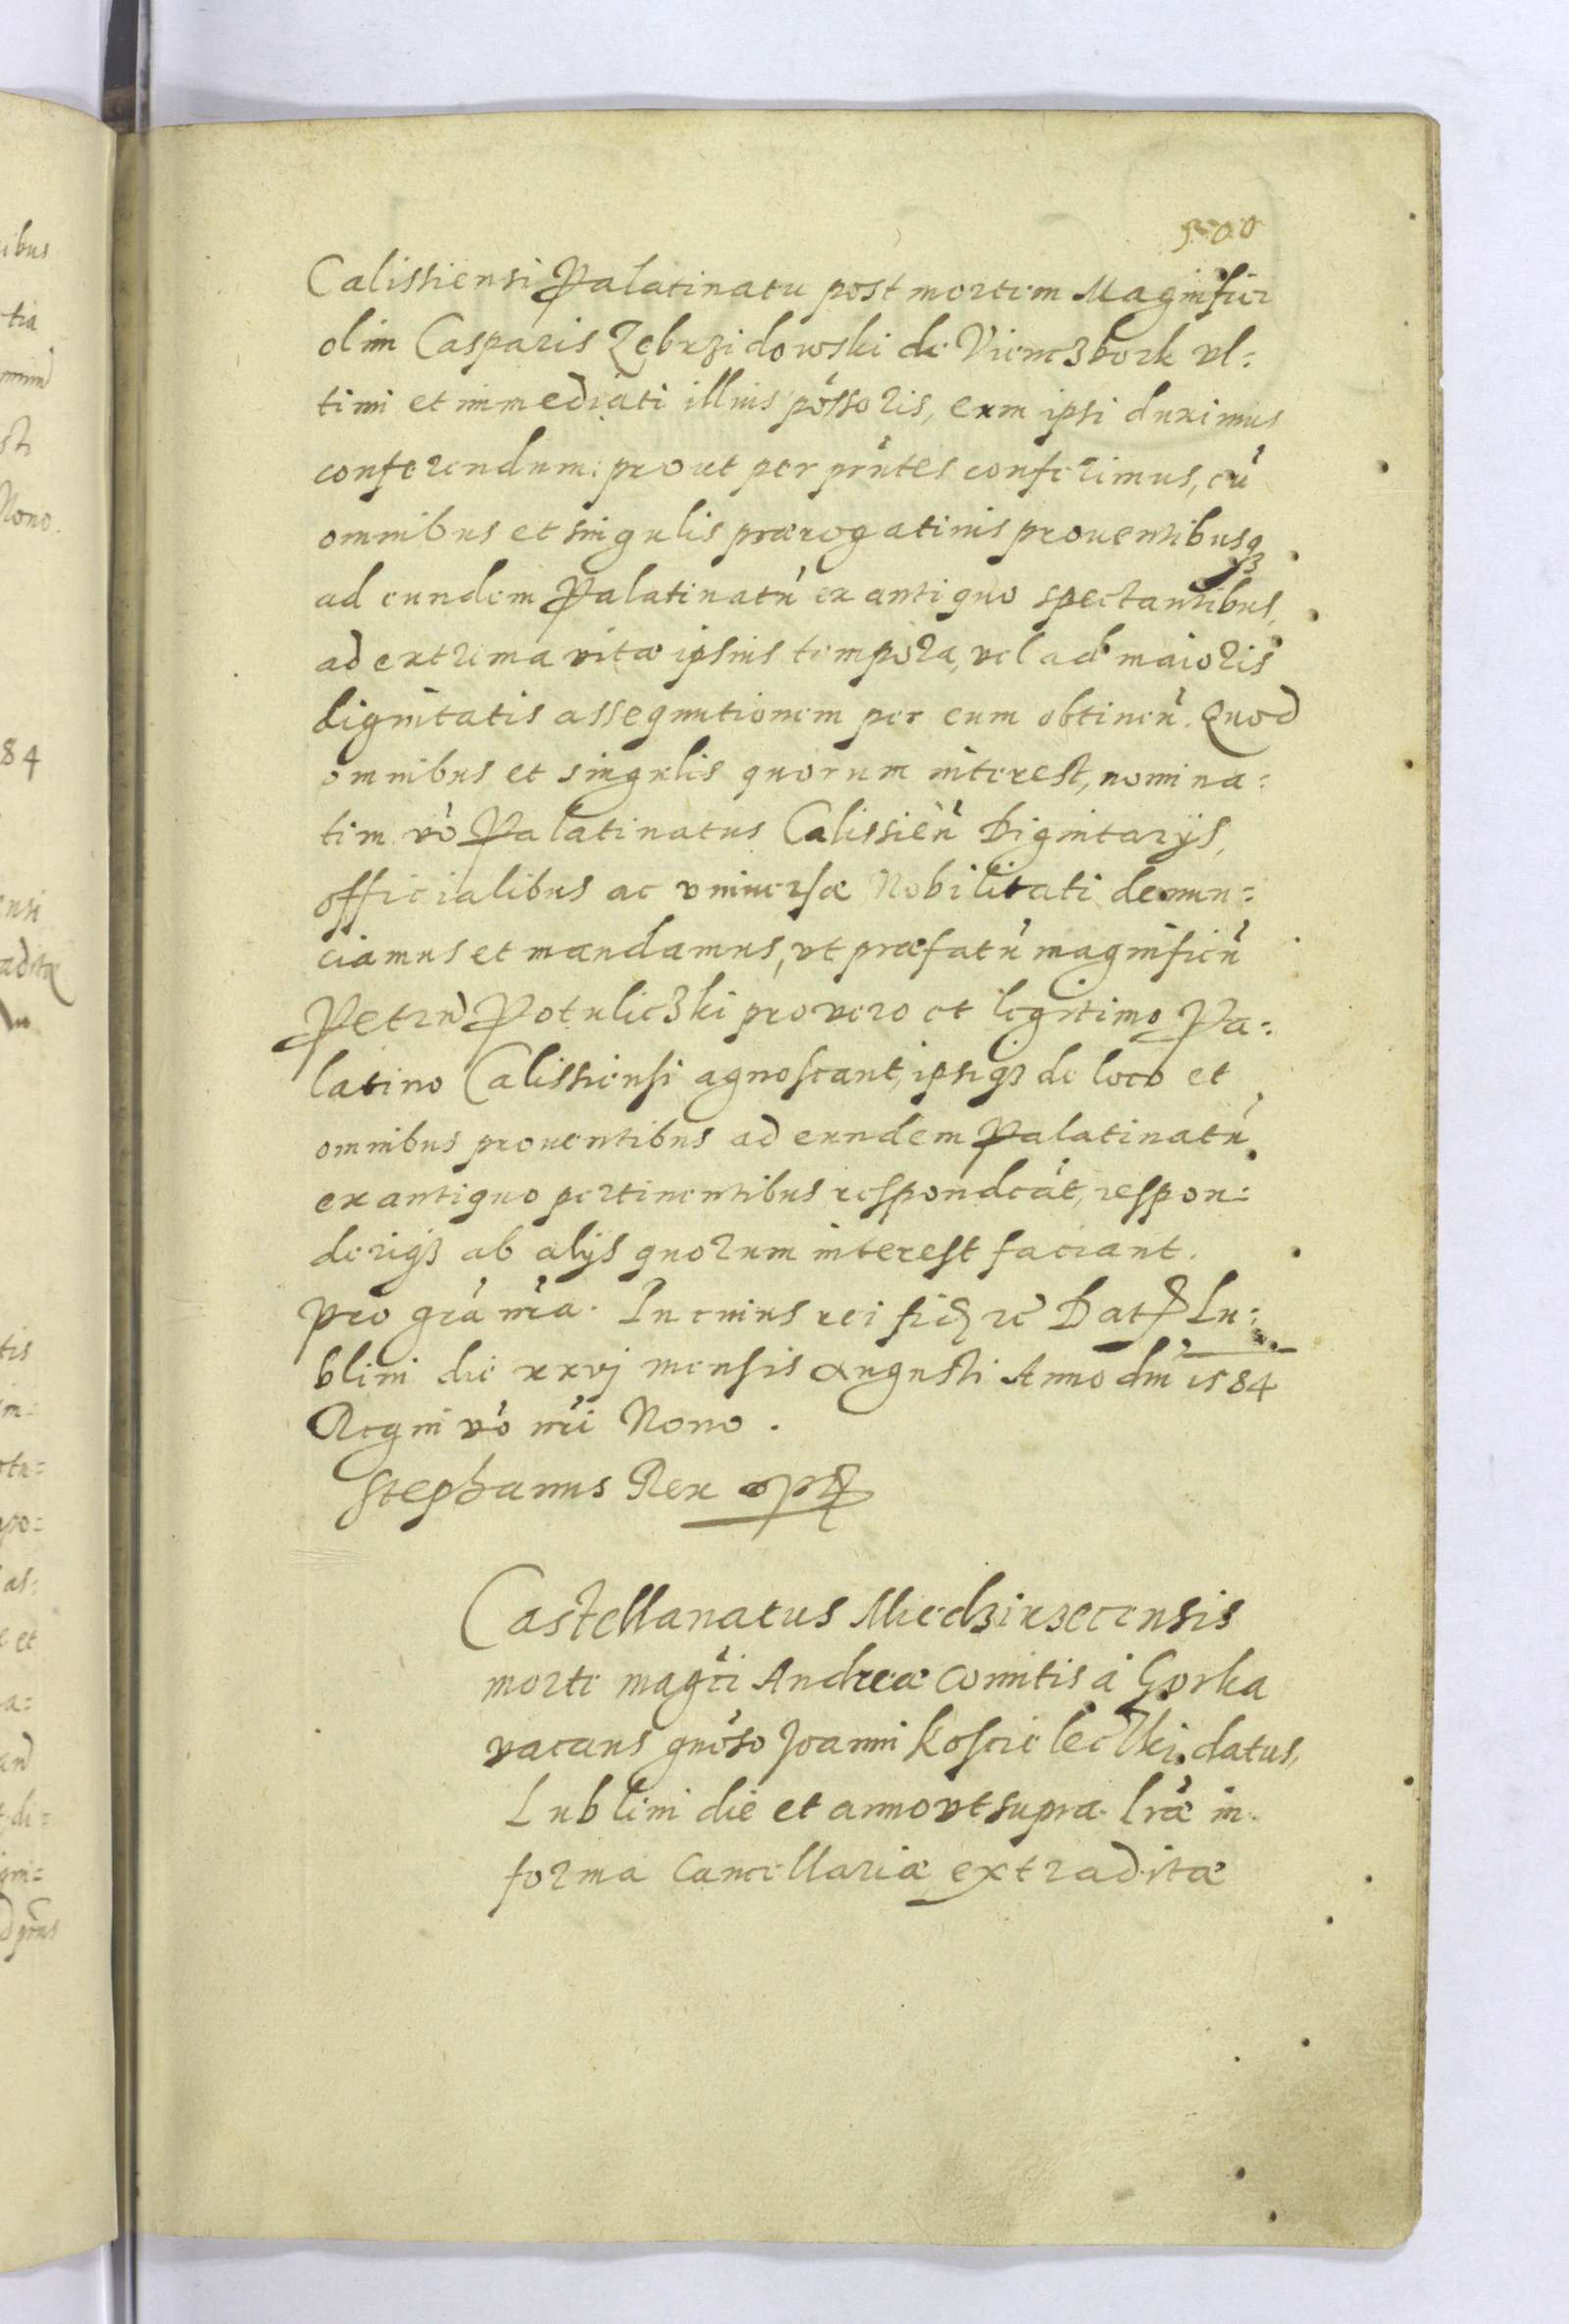 500
Calissiensi Palatinatu post mortem Magnifici
olim Casparis Zebrzidowski de Viemczbork vl:
timi et immediati illius possoris, eum ipsi duximus
conferendum: prout per pntes conferimus, cu
omnibus et singulis prærogatiuis prouentibusq3
ad eundem Palatinatu ex antiquo spectantibus,
ad extrema vitæ ipsius tempora, vel ad maioris
dignitatis assequutionem per eum obtinen. Quod
omnibus et singulis quorum interest, nomina:
tim vo Palatinatus Calissien Dignitarijs,
officialibus ac vniuersæ Nobilitati denun:
ciamus et mandamus, vt præfatu magnificu
Petru Potuliczki pro vero et legitimo Pa:
latino Calissiensi agnoscant, ipsiq3 de loco et
omnibus prouentibus ad eundem Palatinatu
ex antiquo pertinentibus respondeat, respon:
deriq3 ab alijs quorum interest faciant.
pro gra nra. In cuius rei fid re Dat Lu:
blini die xxvj mensis Augusti Anno dni 1584
Regni vo nri Nono.
Stephanus Rex
Castellanatus Miedzirzecensis
morte magci Andreæ Comitis à Gorka
vacans gnoso Joanni Koscieleczki datus,
Lublini die et anno vt supra. lræ in
forma Cancellariæ extraditæ
ibus
tia
Nono.
84
ensi
tis
im:
otu:
po:
as:
e et
a:
di:
gni: